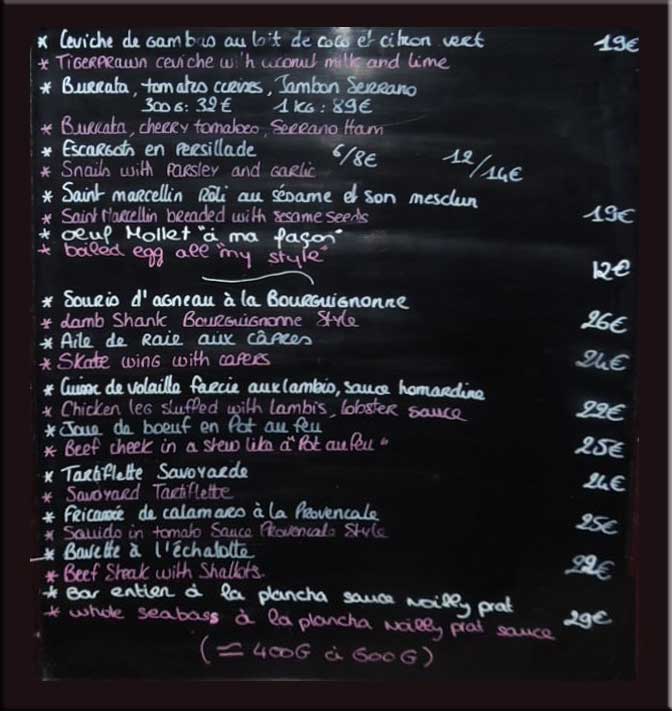 * Ceviche de Gambas au lait de coco et citron vert 19€
* Tigerprawn ceviche with coconut milk and lime
* Burrata, tomates cerises, Jambon Serrano
300G: 32€ 1KG: 89€
* Burrata, cherry tomatoes, Serrano Ham
* Escargots en Persillade 6/8€ 12/14€
* Snails with Parsley and Garlic
* Saint marcellin Rôti au sésame et son mesclun
* Saint Marcellin breaded with sesame seeds 19€
* oeuf Mollet "à ma façon"
* boiled egg all "my style"
12€
* Souris d'agneau à la Bourguignonne
* Lamb Shank Bourguignonne Style 26€
* Aile de Raie aux câpres
* Skate wing with capers 24€
* Cuisse de volaille farcie aux lambis, sauce homardine
* Chicken leg stuffed with lambis, lobster sauce 22€
* Joue de boeuf en Pot au feu
* Beef cheek in a stew like a "Pot au feu" 25€
* Tartiflette Savoyarde
* Savoyard Tartiflette 24€
* Fricassée de calamars à la Provencale
* Squids in tomato Sauce Provencale Style 25€
* Bavette à l'échalotte
* Beef Steak with Shallots. 22€
* Bar entier à la plancha sauce noilly prat
* whole seabass à la plancha noilly prat sauce 29€
(≃ 400G à 600G)